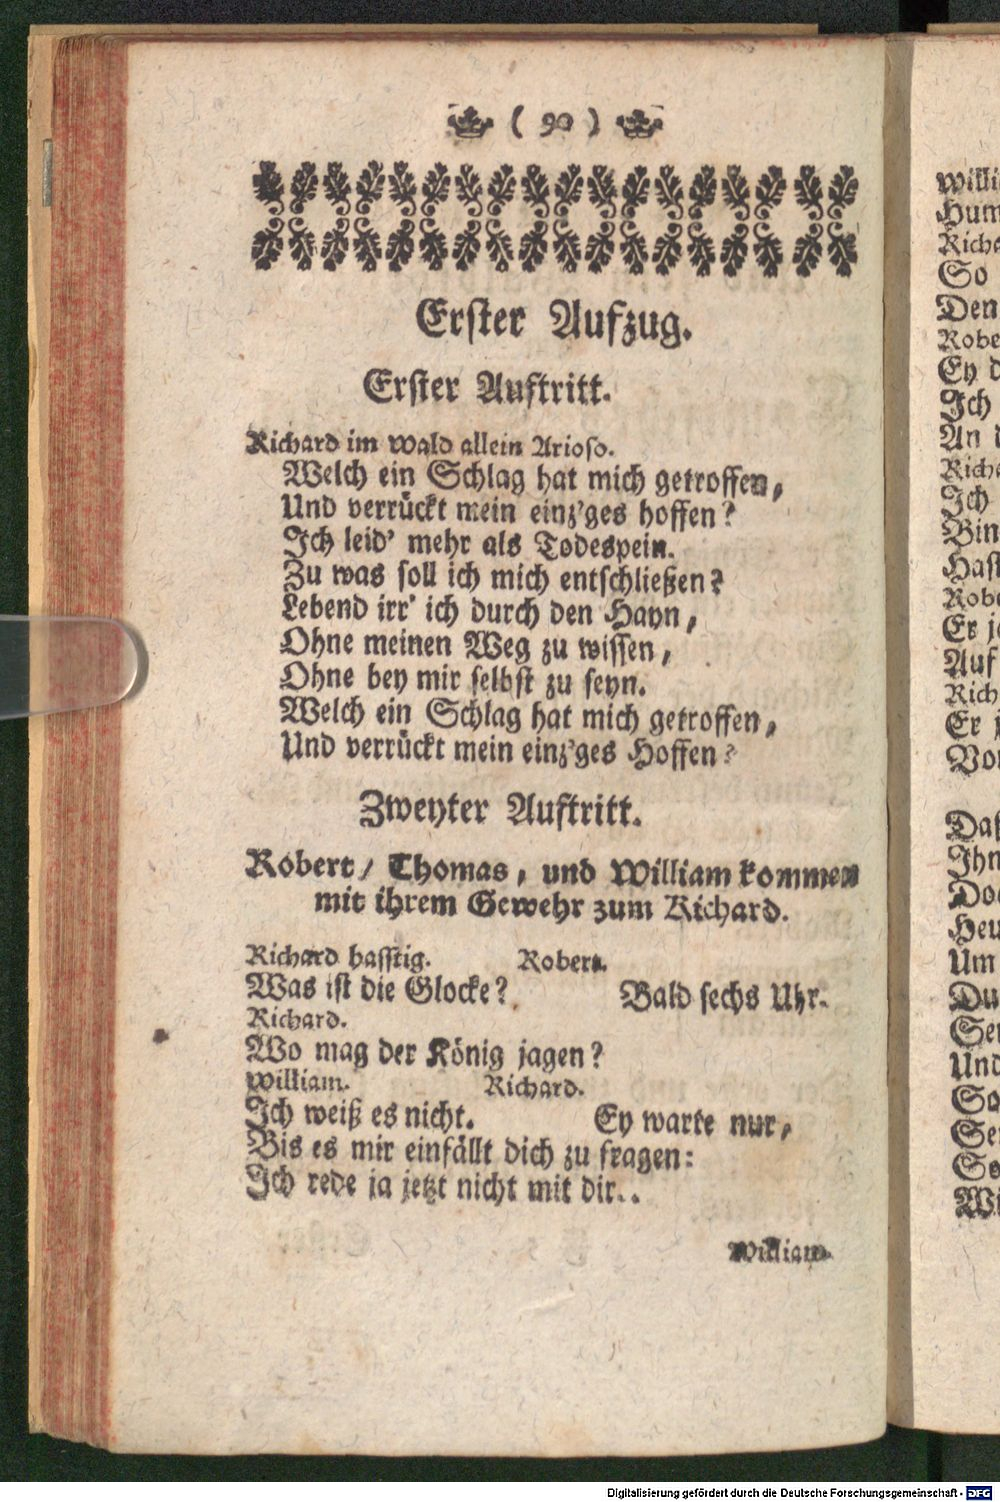 ( 90 )
Erster Aufzug.
Erster Auftritt.
Richard im wald allein Arioso.
Welch ein Schlag hat mich getroffen,
Und verrückt mein einz'ges hoffen?
Ich leid' mehr als Todespein.
Zu was soll ich mich entschließen?
Lebend irr' ich durch den Hayn,
Ohne meinen Weg zu wissen,
Ohne bey mir selbst zu seyn.
Welch ein Schlag hat mich getroffen,
Und verrückt mein einz'ges Hoffen?
Zweyter Auftritt.
Robert/ Thomas, und William kommen
mit ihrem Gewehr zum Richard.
Richard hasstig. Robert.
Was ist die Glocke? Bald sechs Uhr.
Richard.
Wo mag der König jagen?
William. Richard.
Ich weiß es nicht. Ey warte nur,
Bis es mir einfällt dich zu fragen:
Ich rede ja jetzt nicht mit dir..
William.
Willi
Hum
Richa
So
Den
Robe
Ey d
Ich
An
Richa
Ich
Bin
Hast
Robe
Er j
Auf
Rich
Er j
Vo
Daß
Ihn
Do
Heu
Um
Du
Se
Und
So
Se
So
Wi
Digitalisierung gefördert durch die Deutsche Forschungsgemeinschaft - DFG